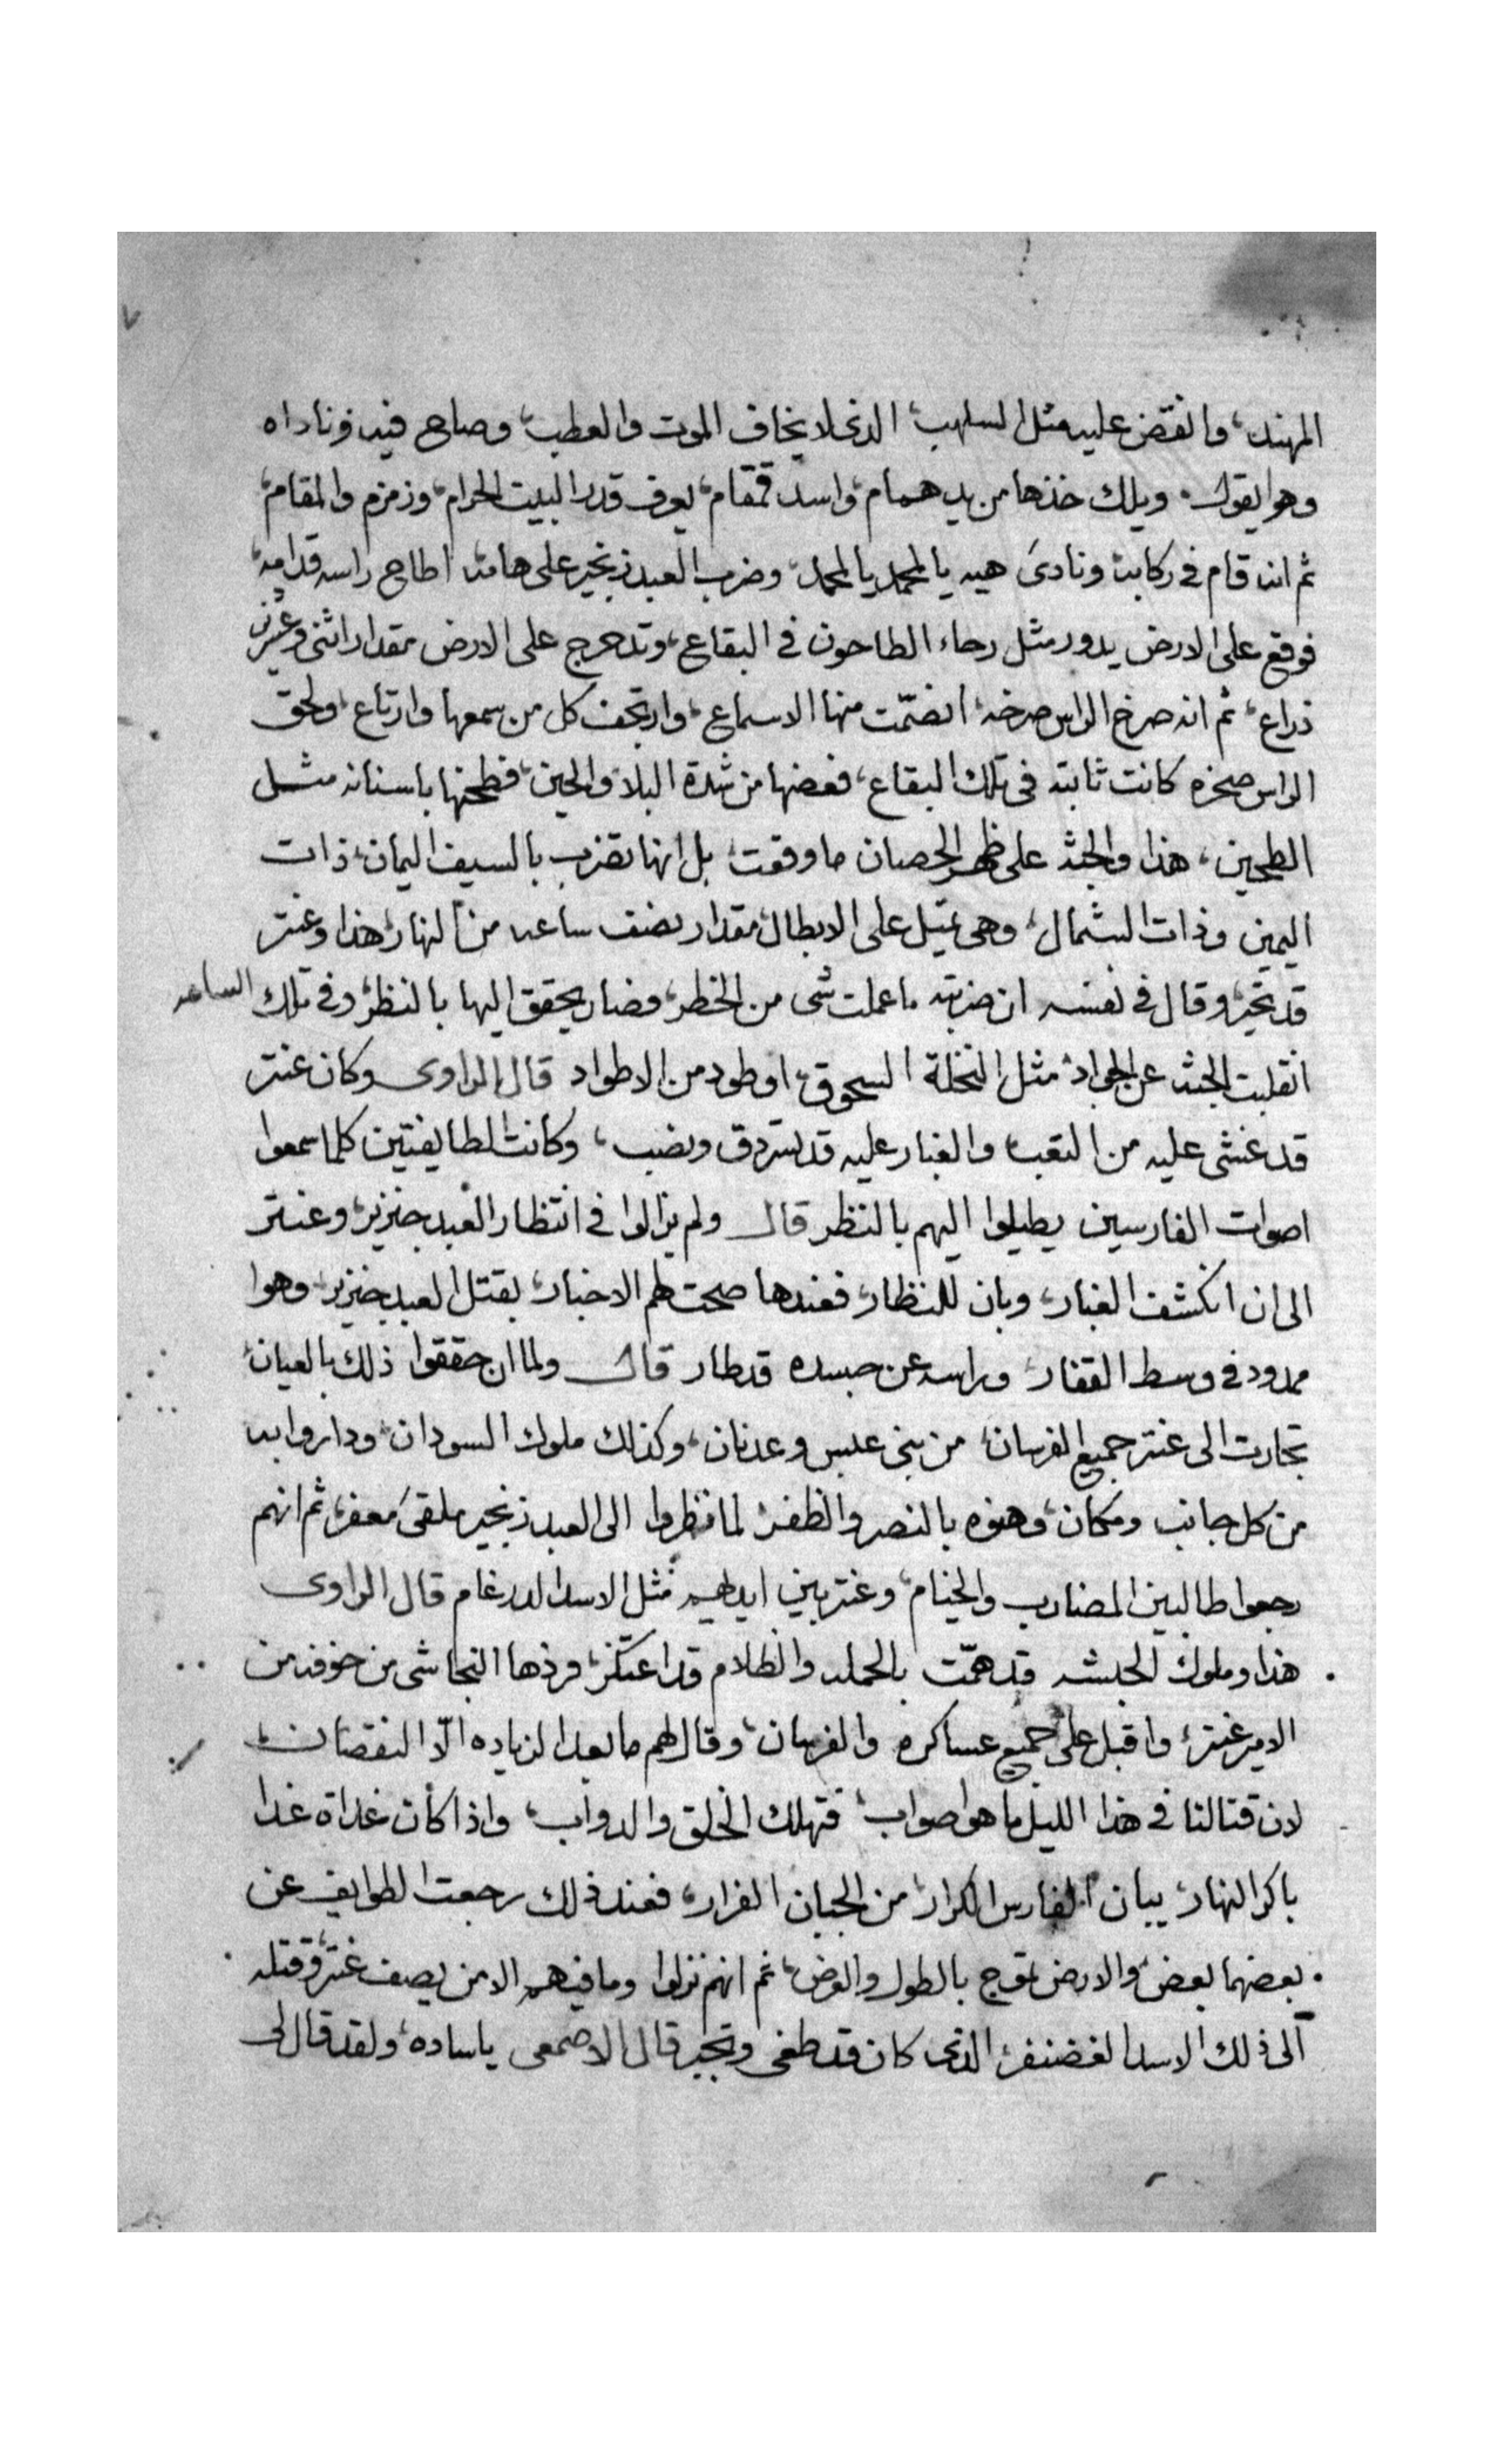 المهند، وانقض عليه مثل السلهب، الذى لا يخاف الموت والعطب، وصاح فيه وناداه
وهو يقول ويلك خذها من يد همام، واسد قمقام، يعرف قدر البيت الحرام، وزمزم والمقام،
ثم انه قام فى ركابه ونادى هيه يا لمحمد يا لمحمد، وضرب العبد زنجير على هامته اطاح راسه قدامه،
فوقع على الارض يدور مثل رحاء الطاحون فى البقاع، وتدحرج على الارض مقدار اثنى وعشرين
ذراع، ثم انه صرخ الراس صرخه، انصمّت منها الاسماع، وارتجف كل من سمعها وارتاع، ولحق
الراس صخره كانت ثابته فى تلك البقاع، فعضها من شدة البلا والحين، فطحنها باسنانه مثل
الطحين، هذا والجثه على ظهر الحصان ما وقعت، بل انها تضرب بالسيف اليمان، ذات
اليمين وذات الشمال، وهى تميل على الابطال، مقدار نصف ساعه من النهار، هذا وعنتر
قد تحير، وقال فى نفسه ان ضربته ما عملت شى من الخطر، وصار يحقق اليها بالنظر، وفى تلك الساعه
انقلبت الجثه عن الجواد، مثل النخلة السحوق، او طود من الاطواد قال الراوى وكان عنتر
قد غشى عليه من التعب، والغبار عليه قد تسردق ونصب، وكانت الطايفتين كلما سمعوا
اصوات الفارسين يطيلوا اليهم بالنظر قال ولم يزالوا فى انتظار العبد خنزير، وعنتر
الى ان انكشف الغبار، وبان للنظار، فعندها صحت لهم الاخبار، بقتل العبد خنزير، وهوا
ممدود فى وسط القفار، وراسه عن جسده قد طار قال ولما ان حققوا ذلك بالعيان،
تجارت الى عنتر جميع الفرسان، من بنى عبس وعدنان، وكذلك ملوك السودان، وداروا به
من كل جانب ومكان، وهنوه بالنصر والظفر، لما نظروا الى العبد زنجير ملقى معفر، ثم انهم
رجعوا طالبين المضارب والخيام، وعنتر بين ايديهم مثل الاسد الدرغام قال الراوى
هذا وملوك الحبشه قد همّت بالحمله والظلام قد اعتكر، فردها النجاشى من خوفه من
الامير عنتر، واقبل على جميع عساكره والفرسان، وقال لهم ما بعد الزياده الّا النقصان،
لان قتالنا فى هذا الليل ما هوا صواب، فتهلك الخلق والدواب، واذا كان غداة غدا
باكر النهار، يبان الفارس الكرار، من الجبان الفرار، فعند ذلك رجعت الطوايف عن
بعضهما بعض، والارض تموج بالطول والعرض، ثم انهم نزلوا وما فيهم الا من يصف عنتر وقتله
الى ذلك الاسد الغضنفر، الذى كان قد طغى وتجبر قال الاصمعى ياساده، ولقد قال لى